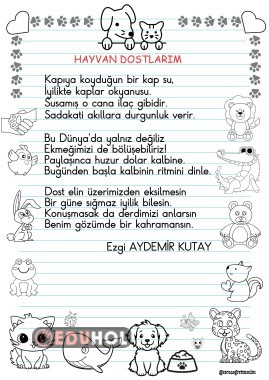 HAYVAN DOSTLARIM
Kapıya koyduğun bir kap su,
İyilikte kaplar okyanusu.
Susamış o cana ilaç gibidir.
Sadakati akıllara durgunluk verir.
Bu Dünya'da yalnız değiliz
Ekmeğimizi de bölüşebiliriz!
Paylaşınca huzur dolar kalbine.
Bugünden başla kalbinin ritmini dinle.
Dost elin üzerimizden eksilmesin
Bir güne sığmaz iyilik bilesin.
Konuşmasak da derdimizi anlarsın
Benim gözümde bir kahramansın.
Ezgi AYDEMİR KUTAY
EDUHOL